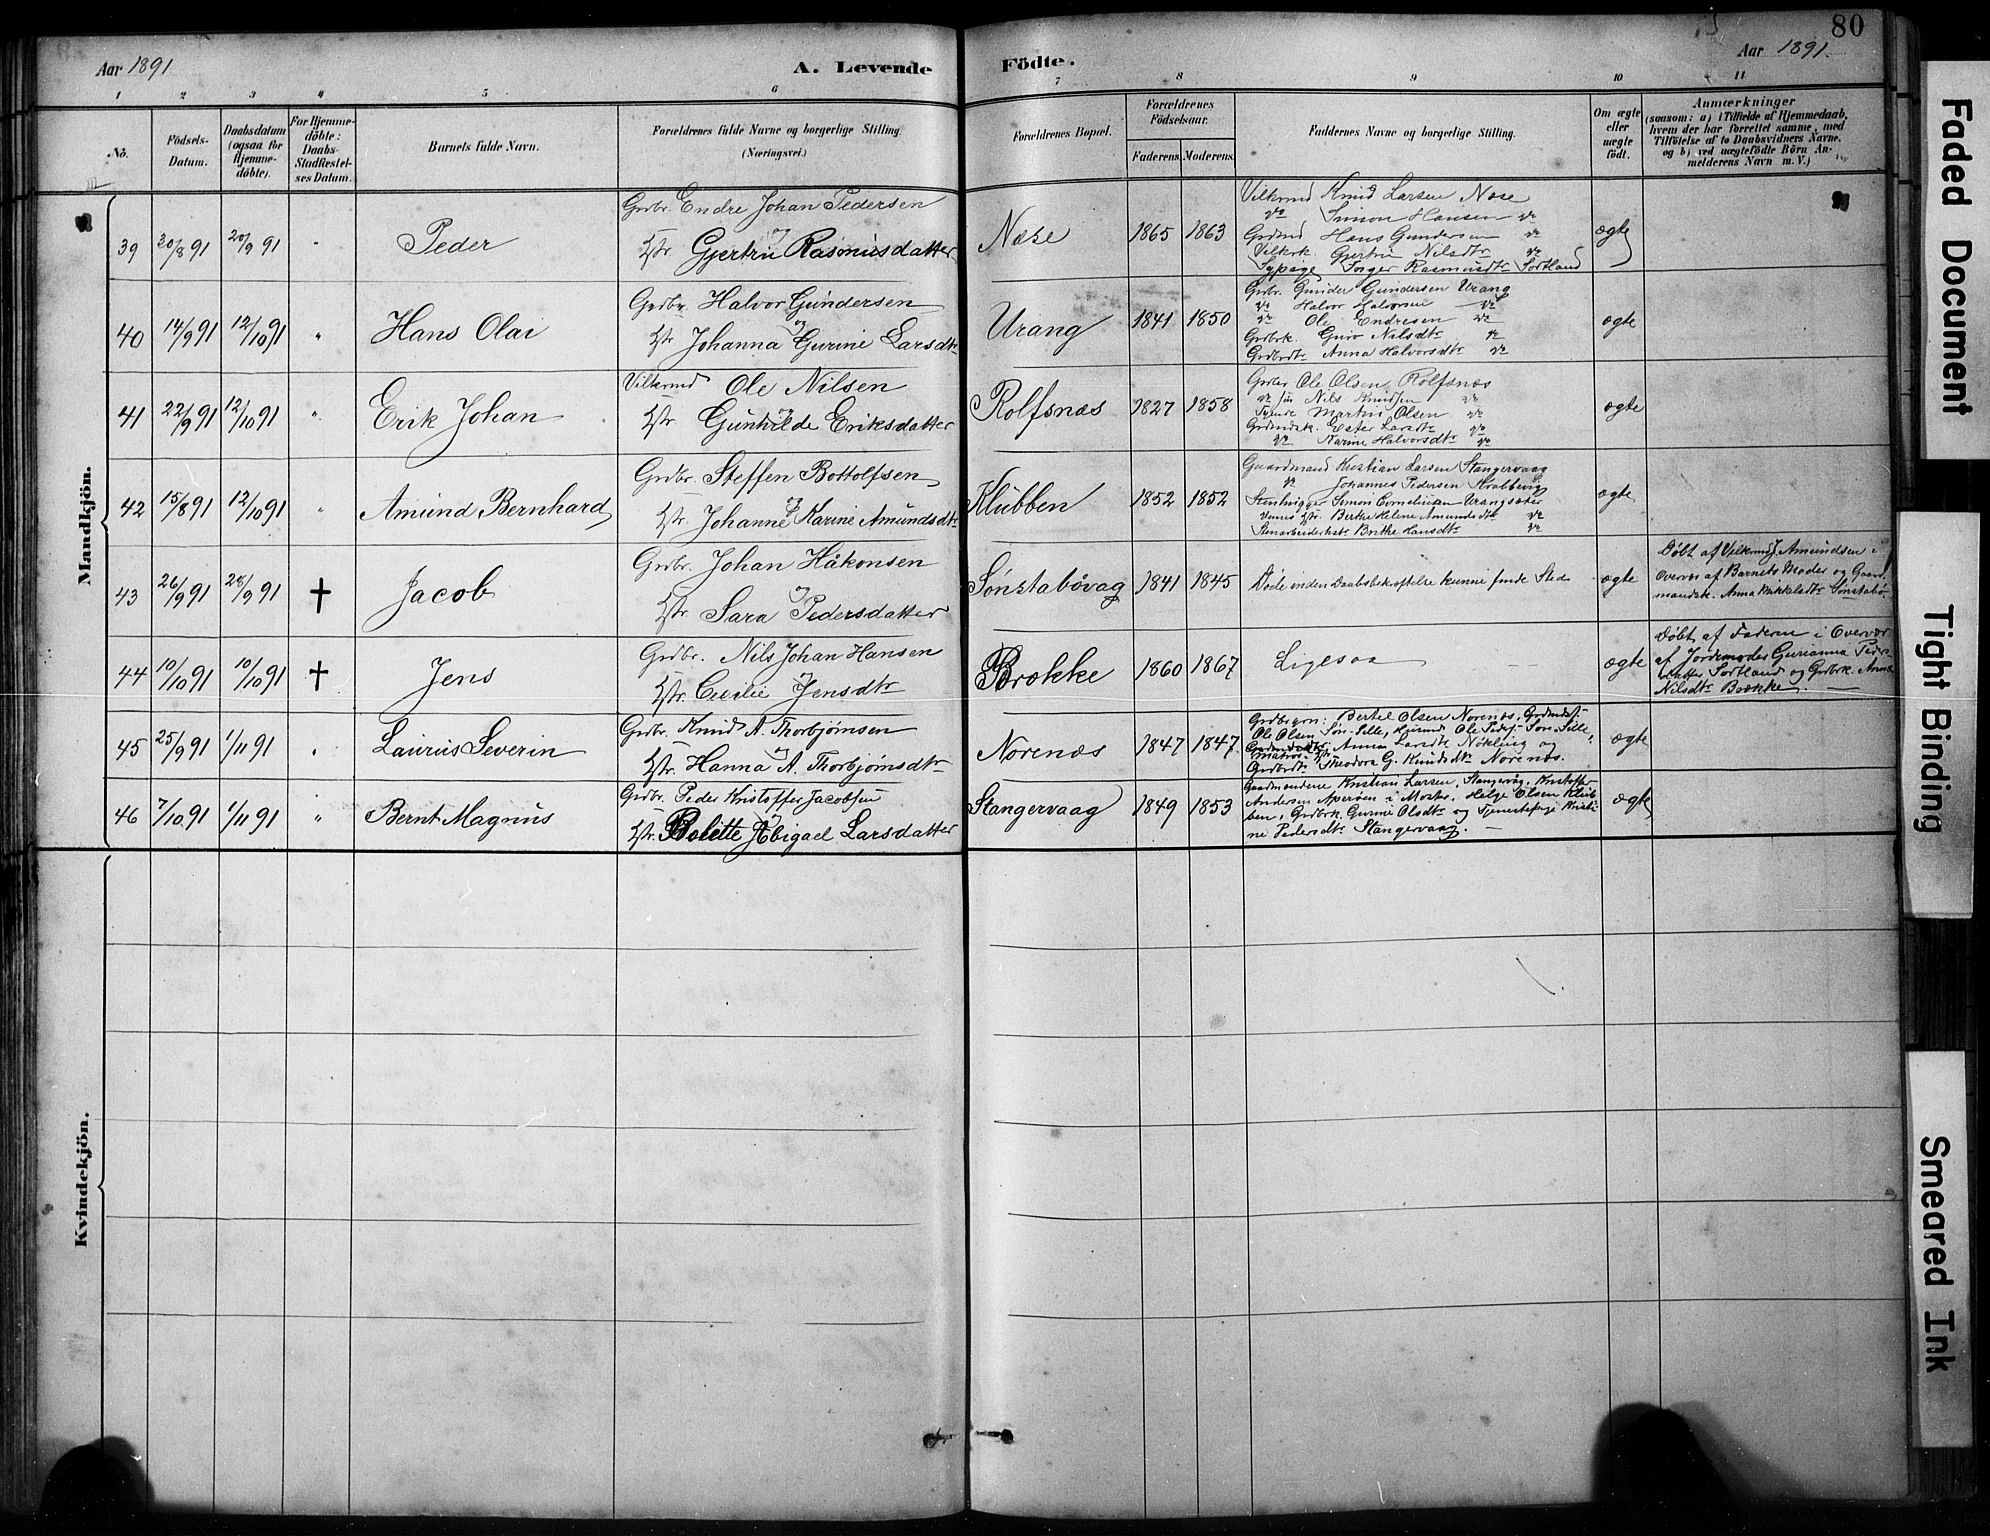 80
Aar 1891
A. Levende
Födte.
Aar 1891.
1 2 3 4 5 6 7 8 9 10 11
No.
Födsels-
Datum.
Daabsdatum
(ogsaa for
Hjemme-
döbte).
For Hjemme-
döbte:
Daabs-
Stadfæstel-
ses Datum.
Barnets fulde Navn.
Forældrenes fulde Navne og borgerlige Stilling
(Næringsvei.)
Forældrenes Bopæl.
Forældrenes
Födselsaar.
Faderens. Moderens.
Faddernes Navne og borgerlige Stilling.
Om ægte
eller
uægte
födt.
Anmærkninger
(saasom: a) i Tilfælde af Hjemmedaab,
hvem der har forrettet samme, med
Tilföielse af to Daabsvidners Navne,
og b) ved uægtefödte Börn An-
melderens Navn m. V.)
Mandkjön.
39 20/8 91 20/9 91 " Peder
Grdbr. Endre Johan Pedersen
og
Hstr. Gjertrü Rasmusdatter
Næse 1865 1863
Vilkrmd Knud Larsen Næse
do Simon Hansen do
Grdmd Hans Gundersen do
Vilkrk. Gjertrü Nilsdtr do
Sypige Inger Rasmusdtr Sortland
ægte
40 14/9 91 12/10 91 " Hans Olai
Grdbr. Halvor Gundersen
og
Hstr Johanna Gurine Larsdtr
Urang 1841 1850
Grdbr. Gunder Gundersen Urang
do Halvor Halvorsen do
do Ole Endresen do
Grdbrk. Guro Nilsdtr do
Grdbrdtr Anna Halvorsdtr do
ægte
41 22/9 91 12/10 91 " Erik Johan
Vilkrmd Ole Nilsen
og
Hstr. Gunhilde Eriksdatter
Rolfsnæs 1827 1858
Grdbr Ole Olsen Rolfsnæs
do søn Nils Knudsen do
Martin Olsen do
Grdmdsk. Ester Larsdtr do
do Karine Halvorsdtr do
ægte
42 15/8 91 12/10 91 " Amund Bernhard
Grdbr. Steffen Bottolfsen
og
Hstr. Johanne Karine Amundsdtr
Klubben 1852 1852
Gaardmand Kristian Larsen Stangervaag
do Johannes Pedersen
Stenhugger Simon Cornelius Urangsæter
Hstr. Berte Helene Amundsdtr do
Stenarbeiderksk. Brithe Hansdtr do
ægte
43 26/9 91 28/9 91 † Jacob
Grdbr. Johan Håkonsen
og
Hstr. Sara Pedersdatter
Sønstabøvag 1841 1845
Døde inden Daabsbekræftelse kunne finde Sted
ægte
Døbt af Vilkrmd J. Amundsen i
Overvær af Barnets Moder og Gaard-
mandsk. Anna Mikkelsdtr Sønstabø.
44 10/10 91 10/10 91 † Jens
Grdbr. Nils Johan Hansen
og
Hstr. Cecilie Jensdtr
Brække 1860 1867
Ligesaa
ægte
Døbt af Faderen i Overvær
af Jordemoder Gurianna Peders-
datter Sortland og Grdbrk. Anna
Nilsdtr Brække.
45 25/9 91 1/11 91 " Laurus Severin
Grdbr. Knud A. Thorbjørnsen
og
Hstr. Hanna A. Thorbjørnsdtr
Norenæs 1847 1847
Grdbrgrn: Bertel Olsen Norenæs, Grdmdsf.
Ole Olsen Søn-Sille, Ole Peders. Søn-Sille,
Anna Larsdtr Nøkling og
Grdbrdtr Theodora G. Knudsdtr Norenæs.
ægte
46 7/10 91 1/11 91 " Bernt Magnus
Grdbr. Peder Kristoffer Jacobsen
og
Hstr. Bolette Abigael Larsdatter
Stangervaag 1849 1853
Gaardmændene Kristian Larsen, Stangervåg, Kristoffer
Andersen Aperøen i Moster, Helge Olsen Klub-
ben, Grdbrk. Gurine Olsdtr og Tjenestepige Kristi-
ne Pedersdtr Stangervaag.
ægte
Kvindekjön.
Faded Document
Tight Binding
Smeared Ink